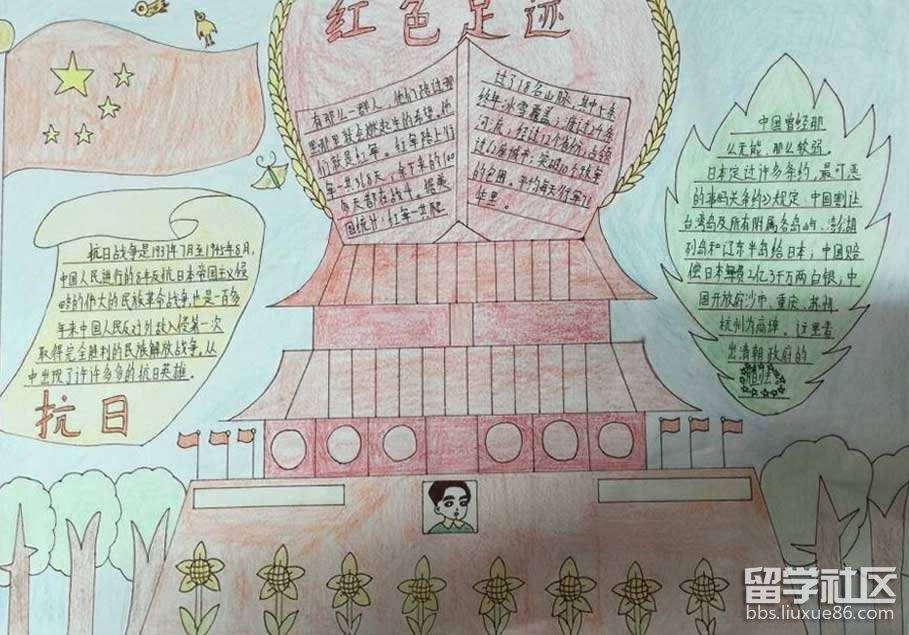 红色足迹
有那么一群人，他们经过哪
里哪里就会燃起生的希望，他
们就是红军。红军踏上行
军一共368天，余下来的100
多天都在战斗。据美
国统计，红军一共爬
过了18名山脉，其中5条
终年冰雪覆盖；渡过24条
河流；经过12个省份；占领
过62座城市；突破10个敌军
的包围。平均每天行军71
华里。
中国曾经那
么无能，那么软弱。
日本定过许多条约，最可恶
的事《马关条约》规定：中国割让
台湾岛及所有附属各岛屿、澎湖
列岛和辽东半岛给日本；中国赔
偿日本军费2亿3千万两白银；中
国开放府沙市、重庆、苏州
杭州为商埠。这里看
出清朝政府的
抗日战争是1937年7月至1945年8月，
中国人民进行的8年反抗日本帝国主义侵
略的伟大的民族革命战争也是一百多
年来中国人民反对外敌入侵第一次
取得完全胜利的民族解放战争。从
中出现了许许多多的抗日英雄。
抗日
留学社区
bbs.liuxue86.com